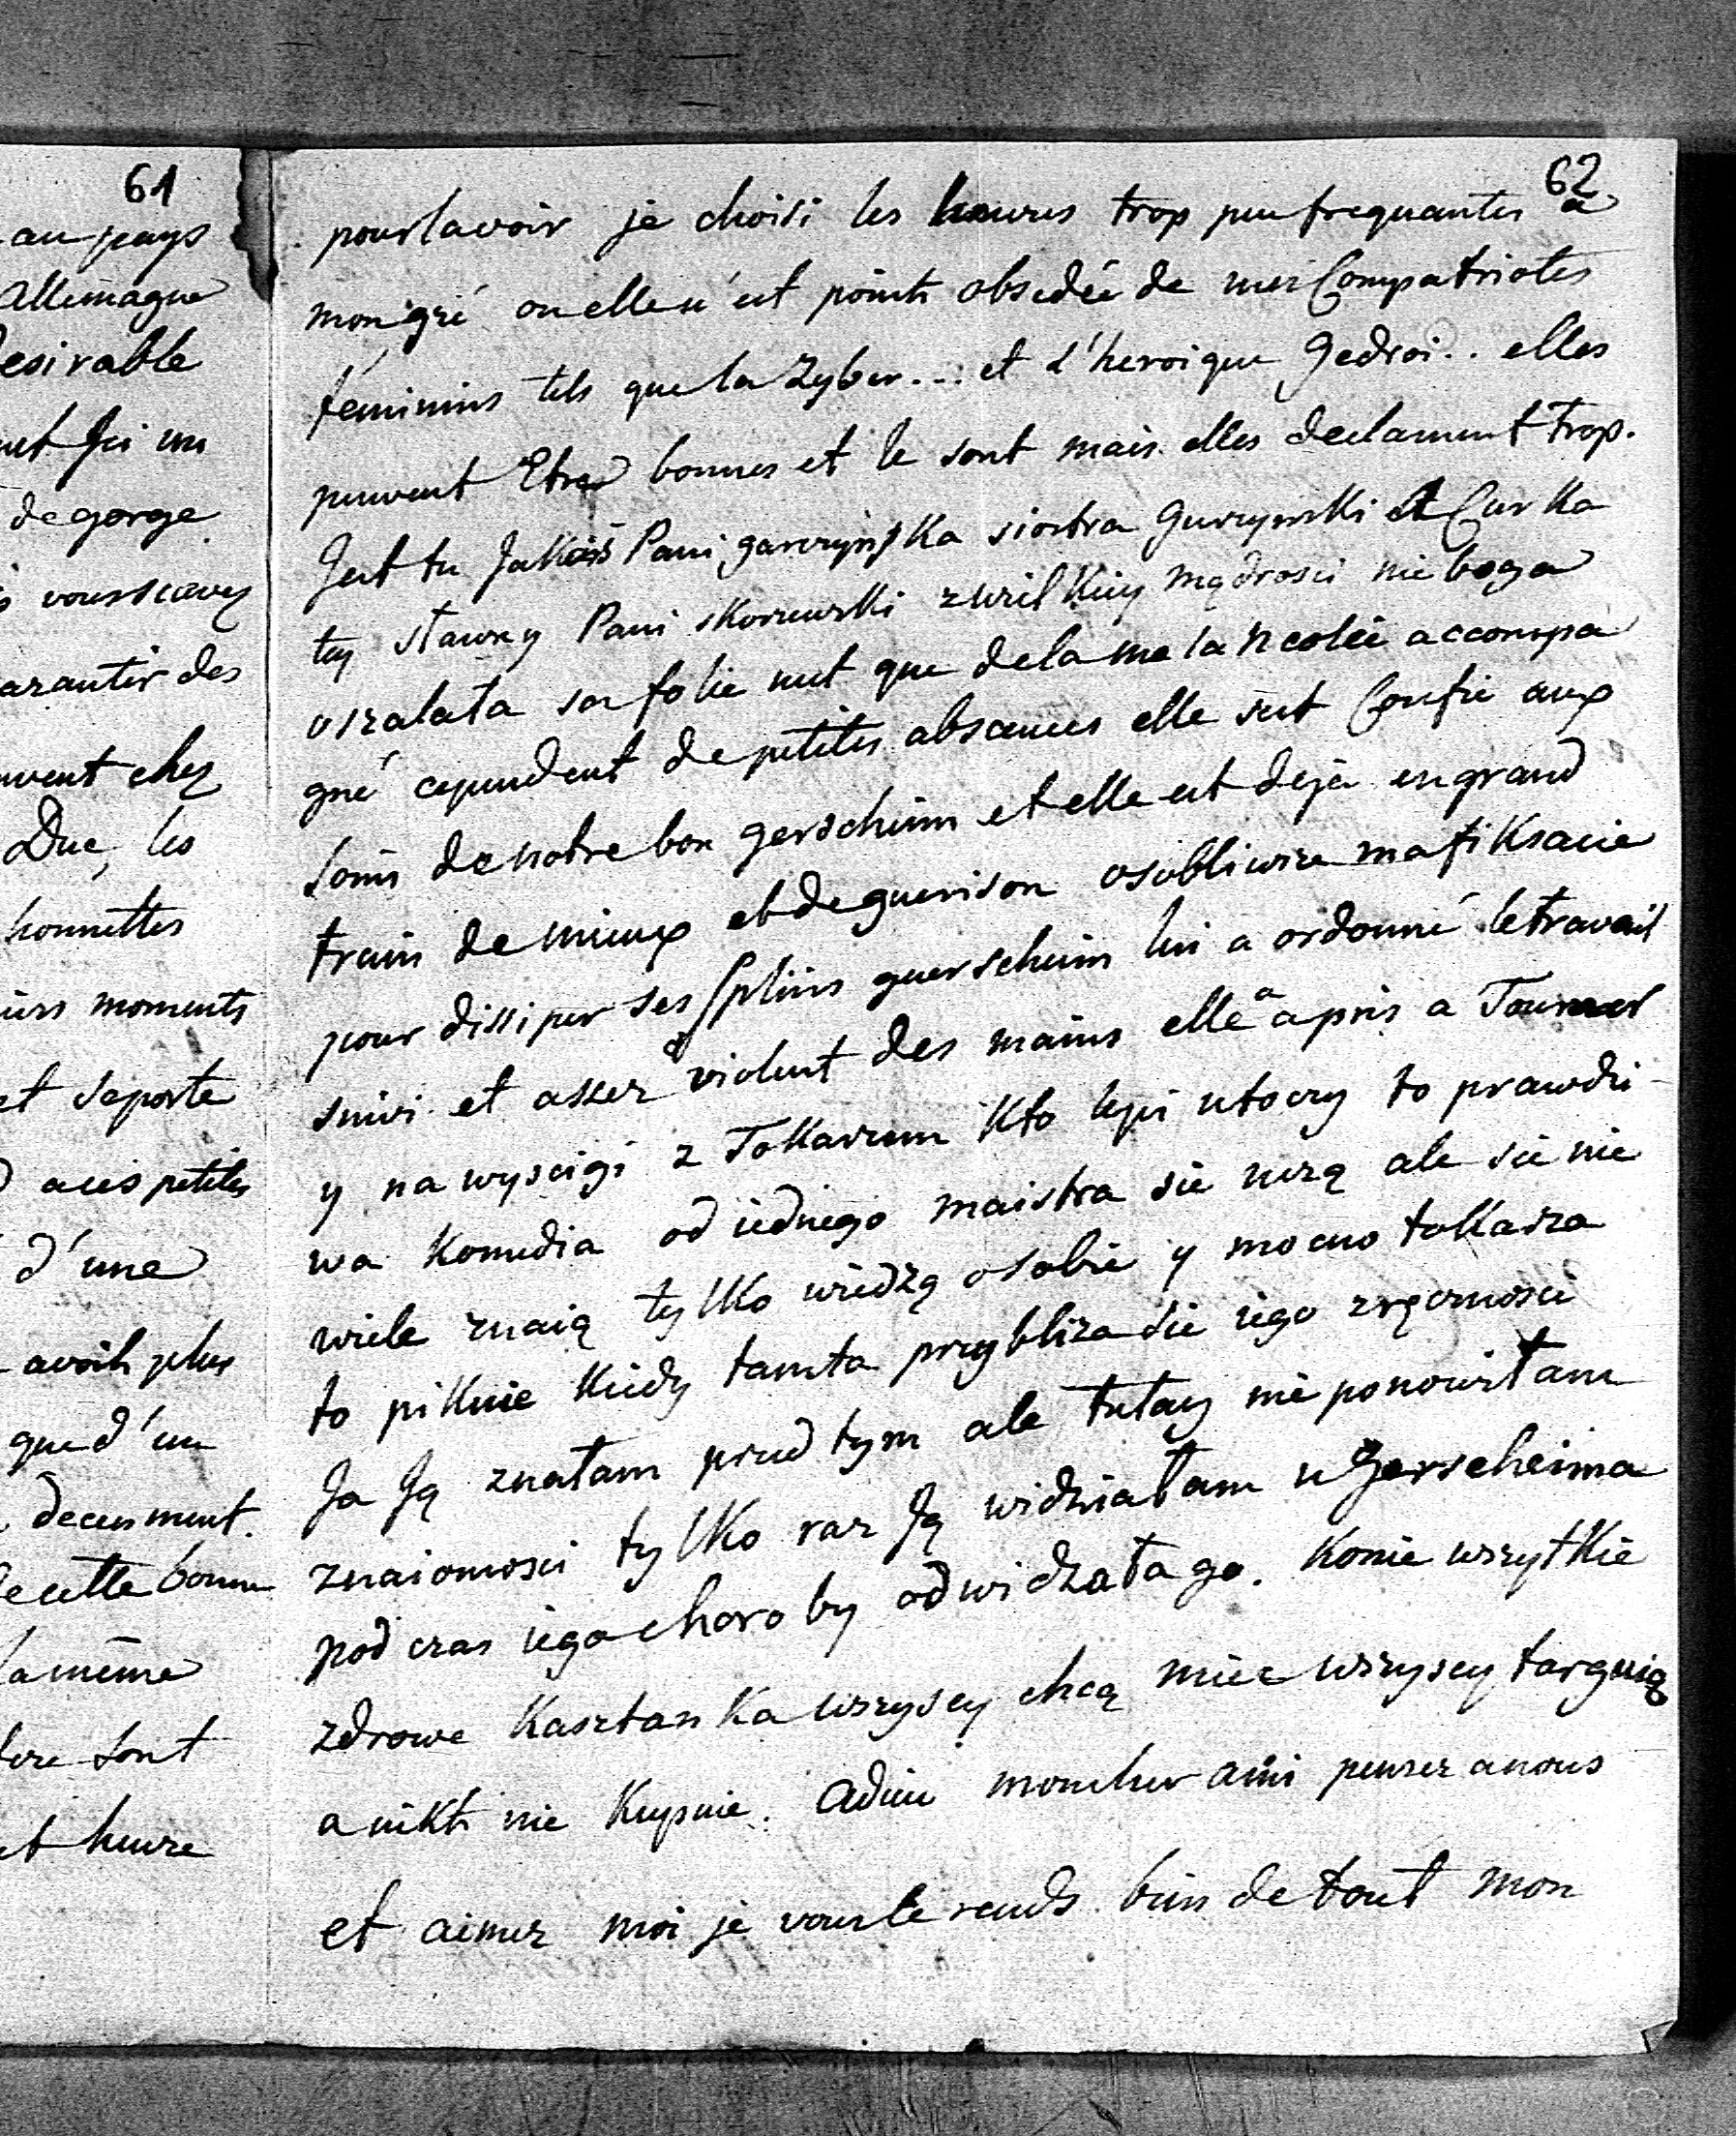 61
au pays
Allemagne
desirable
de gorge
vous scavez
garantir des
chez
Duc, les
honnettes
moments
et se porte
a ces petites
d'une
avoit plus
que d'un
decusment.
de cette bonne
la même
sont
et heure
62
pour la voir je choisi les heures trop peu frequantes a
mon gré ou elle n'est point obsedée de mes Compatriotes
féminins tels que la Zyber... et l'heroique Gedroi.. elles
peuvent Etre bonnes et le sont mais elles declament trop.
Jest tu Jakaiś Pani garczyńska siostra Gurzynski a Curka
tey sławny Pani skorzewski z wielkiey mądrosci nie boga
oszalała sa folie nest que de la melancolie accompa
gné cependent de petites absances elle sest Confie aux
soins de notre bon gerscheim et elle est deja en grand
train de mieux et de guerison osobliwsza ma fiksacie
pour dissiper ses spleins guerscheim lui a ordonné le travail
suivi et assez violent des mains elle a apris a Tourner
y na wyscigi z Tokarzem kto lepi utoczy to prawdzi-
wa komedia od iednego maistra sie uczą ale sie nie
wiele znaią tylko wiedzą o sobie y mocno tokarza
to piknie kiedy tamta przybliza sie iego zręcznosci
Ja Ją znałam przed tym ale tutay nie ponowiłam
znaiomosci tylko raz Ją widziałam u Gerscheima
pod czas iego choroby odwidzała go. Konie wszytkie
zdrowe Kasztanka wszyscy chcą miec wszyscy targuią
a nikt nie kupuie. Adieu mon cher ami pensez a nous
et aimez moi je vous le rends bien de tout mon